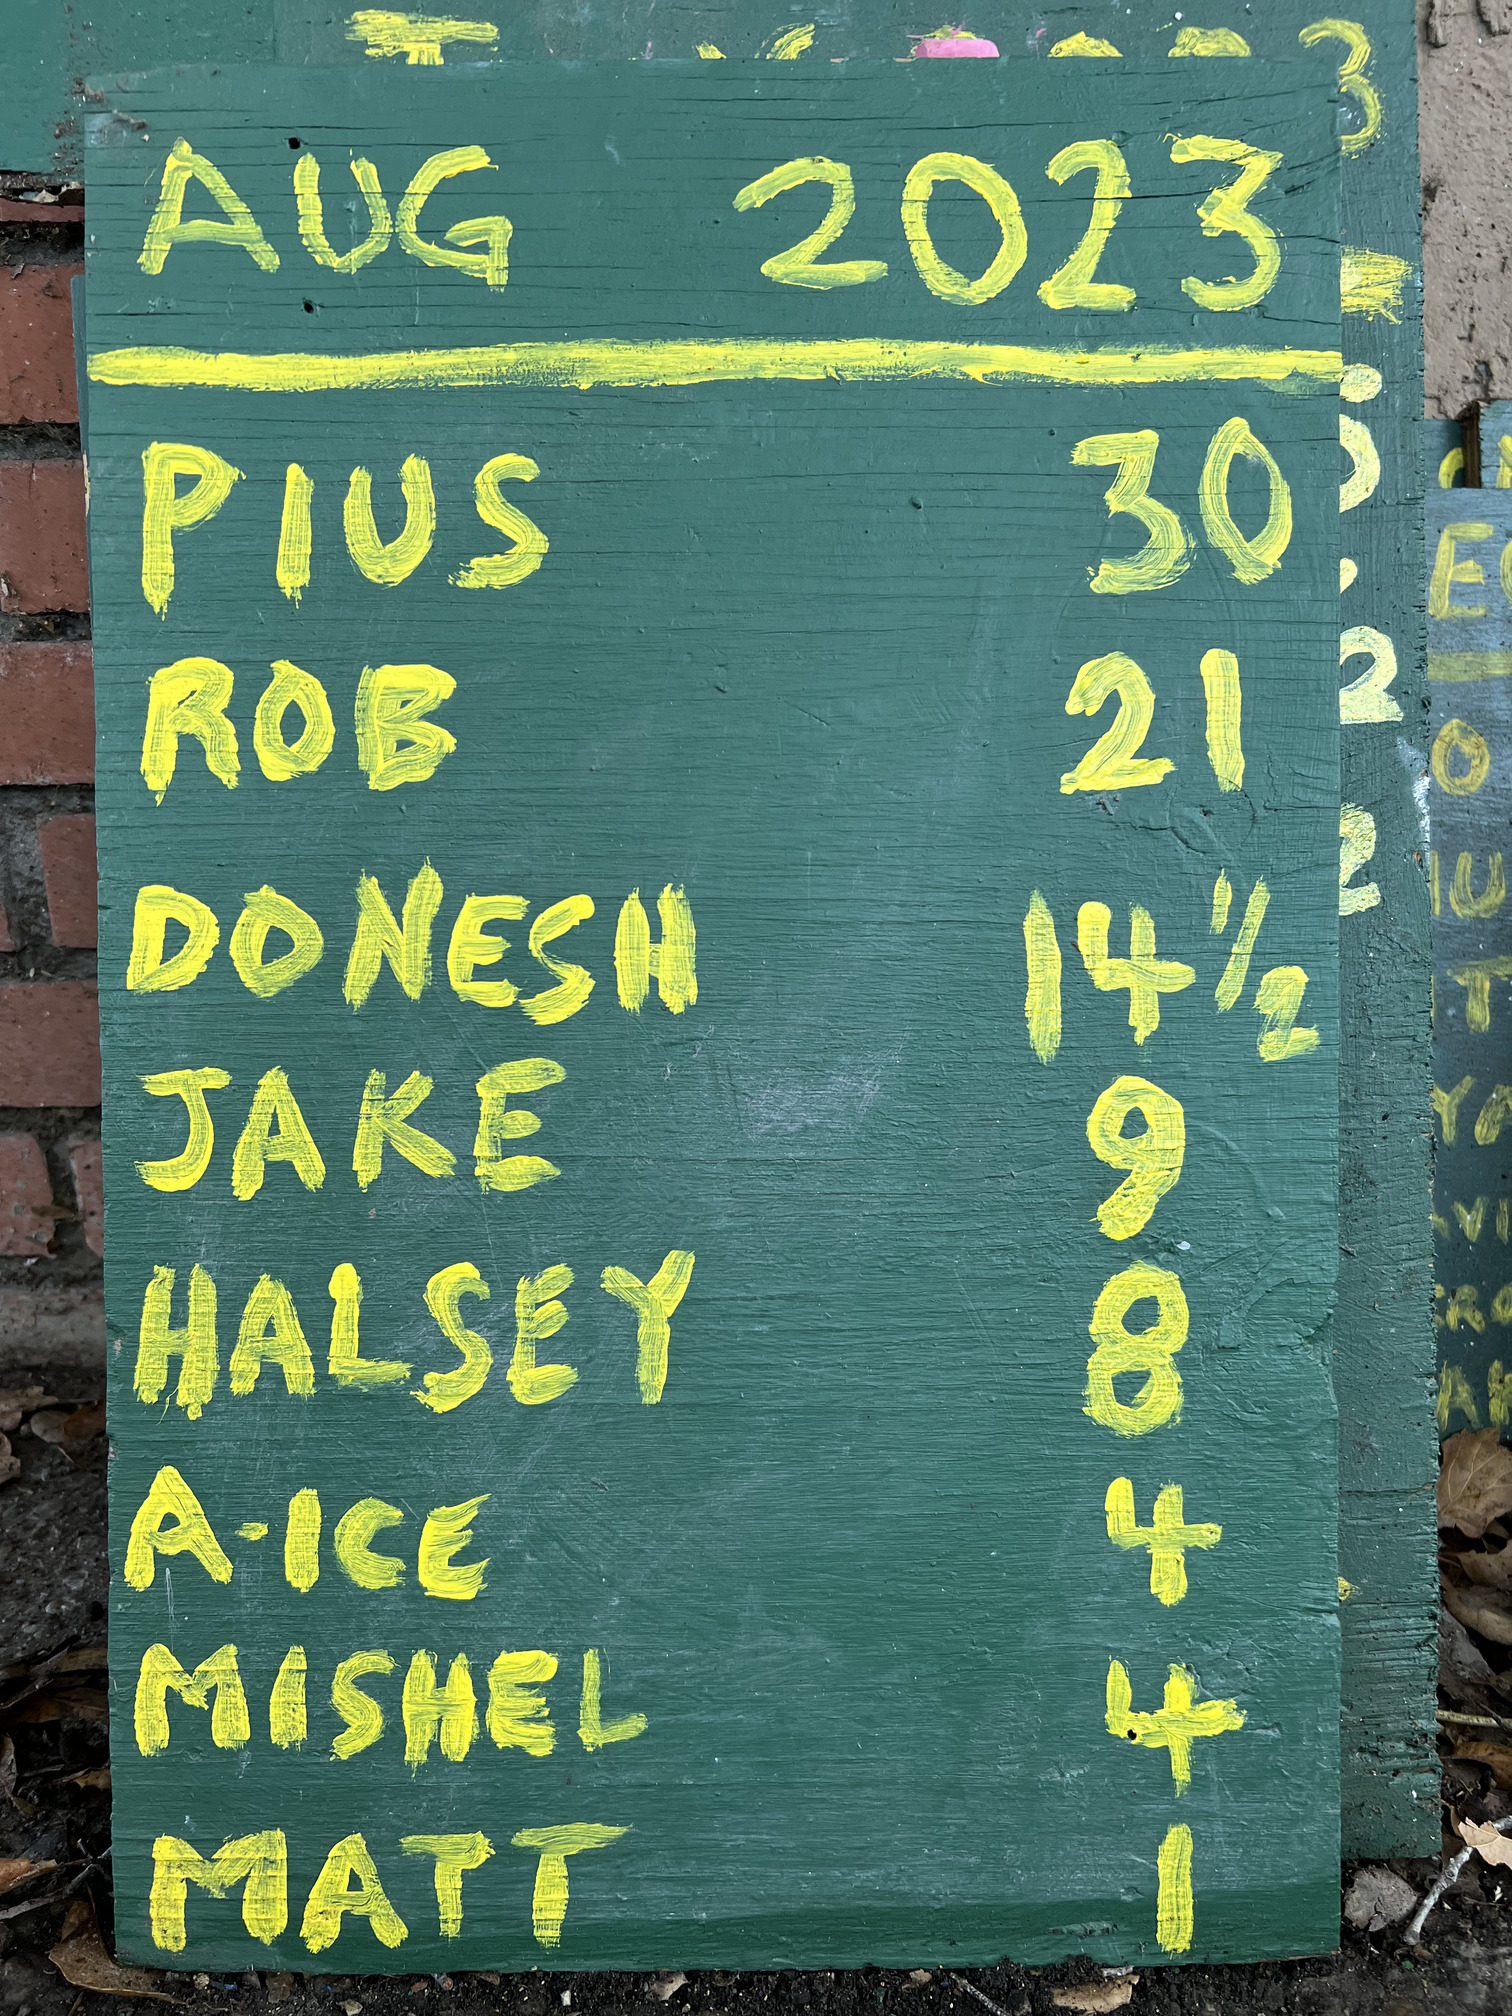 AUG 2023
PIUS 30
ROB 21
DONESH 14 1/2
JAKE 9
HALSEY 8
A-ICE 4
MISHEL 4
MATT 1